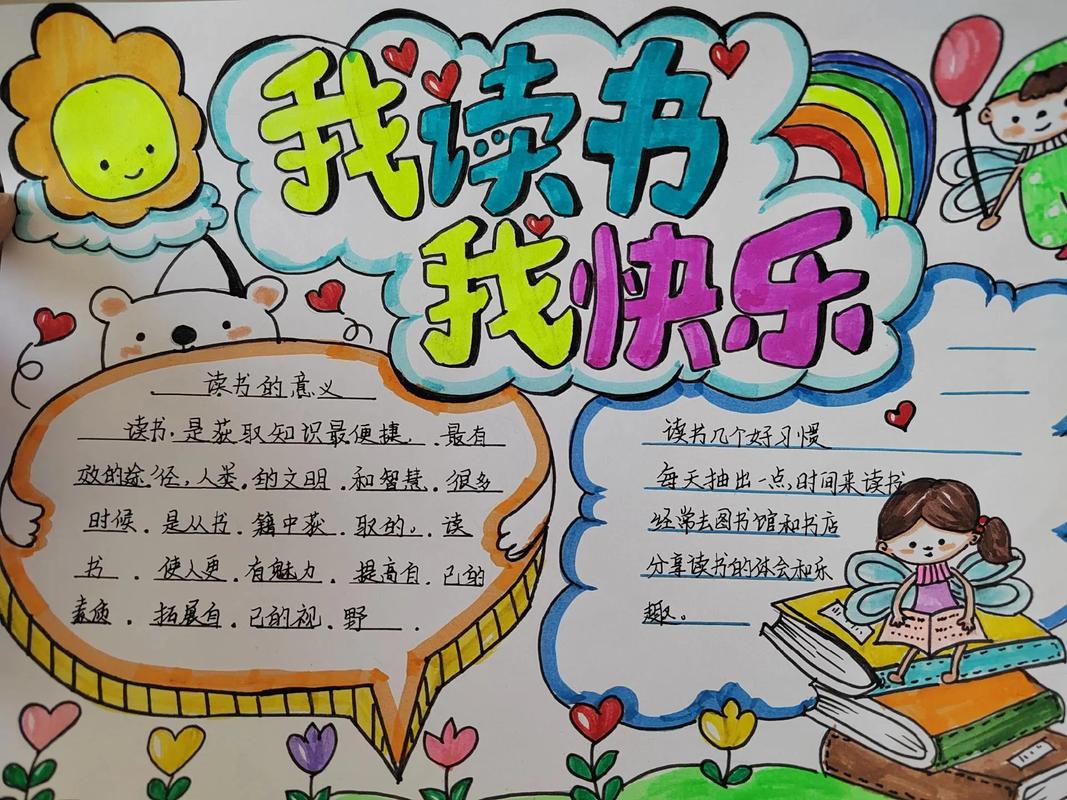 我读书
我快乐
读书的意义
读书.是获取知识最便捷. .最有
效的途径,人类.的文明.和智慧.很多
时候.是从书.籍中获.取的。.读
书.使人更.有魅力.提高自.己的
素质.拓展自.己的视.野.
读书几个好习惯
每天抽出一点时间来读书
经常去图书馆和书店
分享读书的体会和乐
趣。